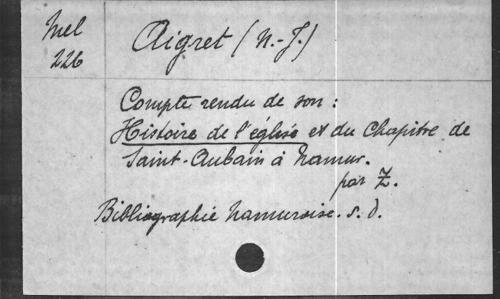 Mel
226
Aigret (N.-J.)
Compte rendu de son :
Histoire de l'église et du Chapitre de
Saint-Aubain à Namur.
par Z.
Bibliographie Namuroise. s. d.